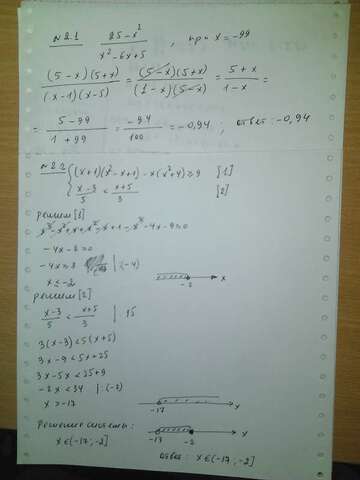 №2.1 (25-x²)/(x²-6x+5) , при x=-99
((5-x)(5+x))/((x-1)(x-5)) = ((5-x)(5+x))/((1-x)(5-x)) = (5+x)/(1-x) =
= (5-99)/(1+99) = (-94)/100 = -0,94; ответ: -0,94
№2.2 { (x+1)(x²-x+1)-x(x²+4)≥9 [1]
(x-3)/5 < (x+5)/3 [2]
решим [1]
x³-x²+x+x²-x+1-x³-4x-9≥0
-4x-8≥0
-4x≥8 |:(-4)
x≤-2 -2 x
решим [2]
(x-3)/5 < (x+5)/3 | 15
3(x-3)<5(x+5)
3x-9<5x+25
3x-5x<25+9
-2x<34 |:(-2)
x>-17 -17 x
Решение системы: -17 -2 x
x∈(-17;-2]
ответ: x∈(-17;-2]